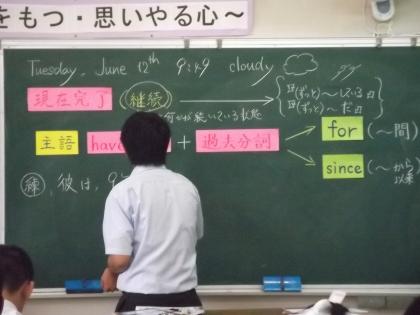 をもつ・思いやる心～
Tuesday, June 12th 9:49 cloudy
現在完了 継続 (ずっと)～している
(ずっと)～だ
何かが続いている状態
主語 have + 過去分詞 for (～間)
since (～から 以来)
練 彼は,